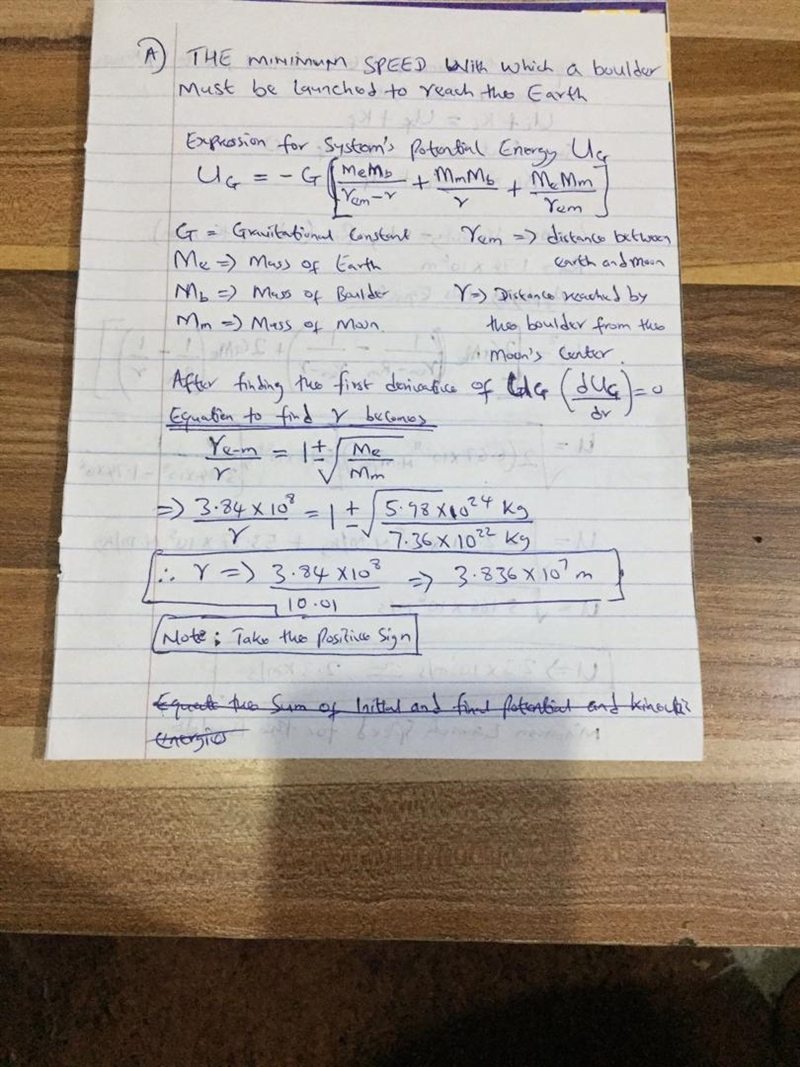 A) THE MINIMUM SPEED With which a boulder
Must be launched to reach the Earth
Expression for System's Potential Energy UG
UG = -G [ MeMb/(rem-r) + MmMb/r + MeMm/rem ]
G = Gravitational Constant rem => distance between
Me => Mass of Earth earth and moon
Mb => Mass of Boulder r => Distance reached by
Mm => Mass of Moon. the boulder from the
Moon's Center.
After finding the first derivative of UG (dUG/dr) = 0
Equation to find r becomes
re-m/r = 1 ± √(Me/Mm)
=> 3.84 x 10^8/r = 1 ± √(5.98 x 10^24 kg/7.36 x 10^22 kg)
∴ r => 3.84 x 10^8/10.01 => 3.836 x 10^7 m
Note: Take the Positive Sign
Equate the Sum of Initial and final potential and kinetic
energies